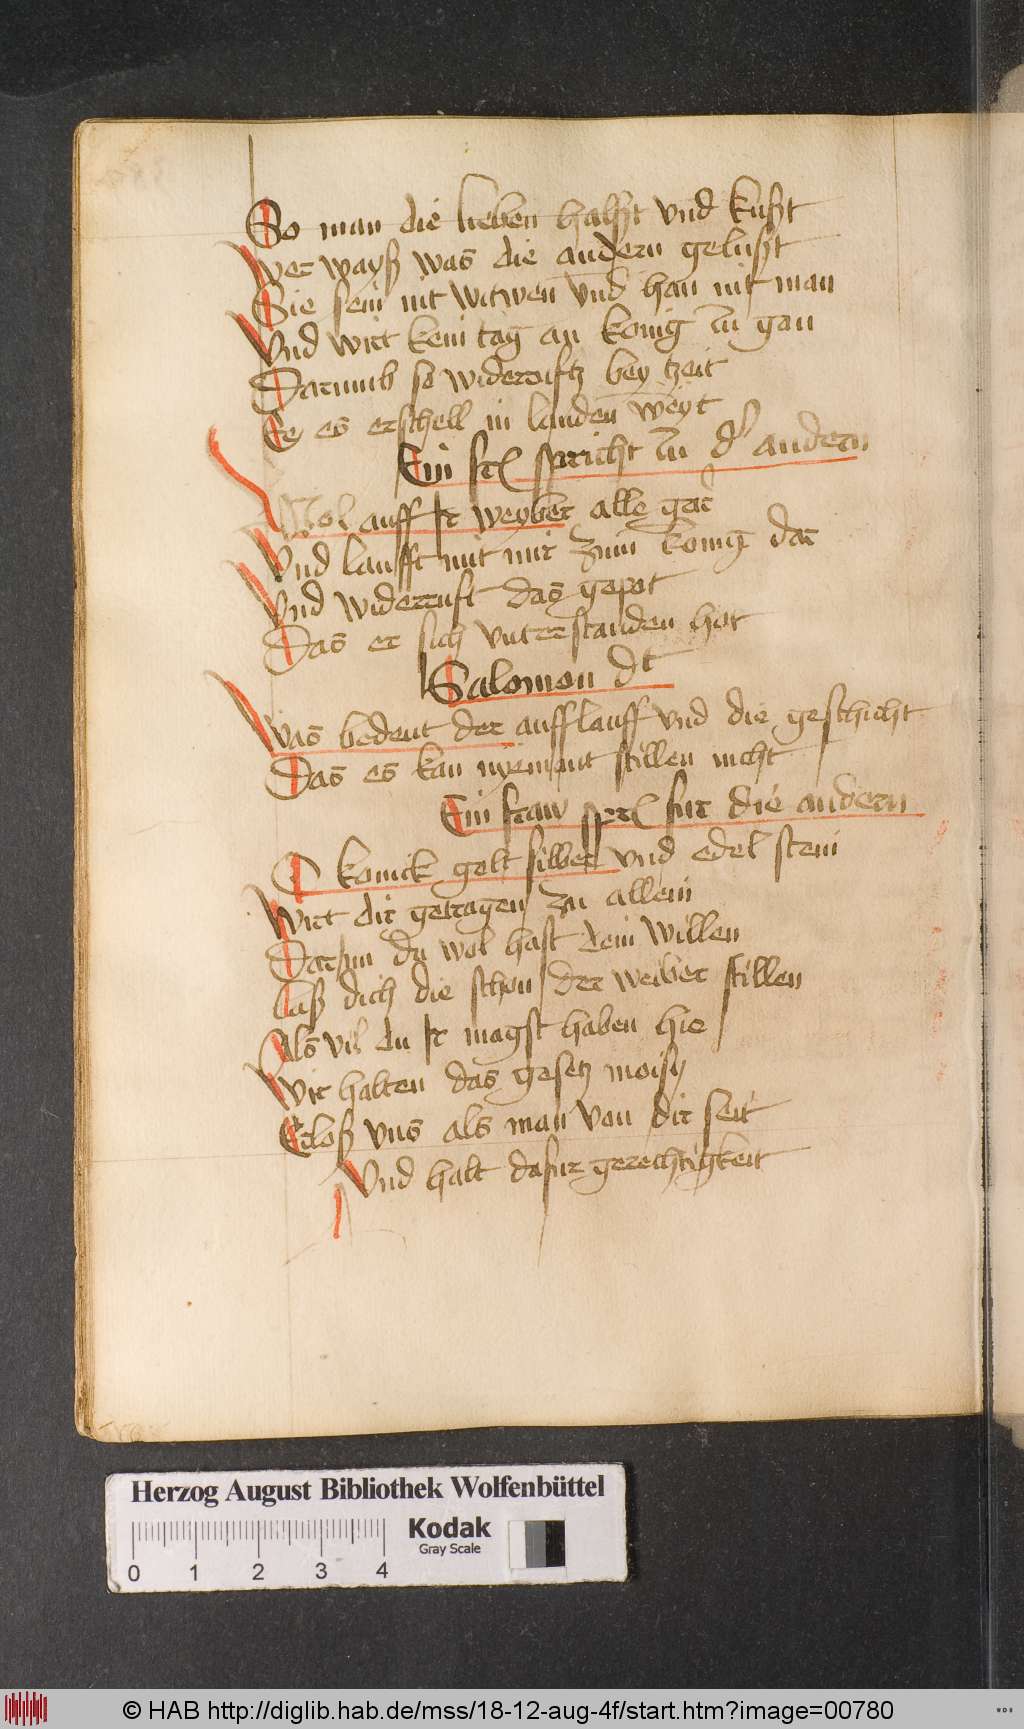 So man die lieben halszt vnd kuszt
wer wayß was die andern geluszt
Sie sein nit witwen vnd han nit man
Vnd wirt kein tag an konig zu gan
Darumb so widerruftz bey tzeit
Ee es erschell in landen weyt
Ein fr spricht zu dr andern
Wol auff ir weyber alle gar
Vnd laufft mit mir zum konig dar
Vnd widerruft das gepot
Das er sich vnterstanden hot
Salomon dt
Was bedeut der aufflauff vnd die geschicht
Das es kan nyemant stillen nicht
Ein fraw spr fur die andern
O konick gelt silber vnd edel stein
Wirt dir getragen zu allein
Darum du wol hast dein willen
laß dich die schon der weiber stillen
Als vil du ir magst haben hie
Wir halten das gesetz moisy
Erloß vns als man von dir seit
Vnd halt dafur gerechtigkeit
Herzog August Bibliothek Wolfenbüttel
Kodak
Gray Scale
0 1 2 3 4
© HAB http://diglib.hab.de/mss/18-12-aug-4f/start.htm?image=00780